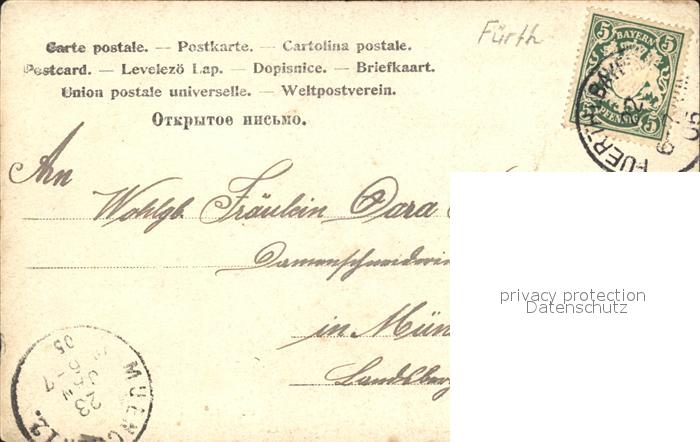 Carte postale. — Postkarte. — Cartolina postale.
Postcard. — Levelező Lap. — Dopisnice. — Briefkaart.
Union postale universelle. — Weltpostverein.
Открытое письмо.
Fürth
5 BAYERN 5
5 PFENNIG 5
FUERTH BAY
05
An
Wohlgb. Fräulein Dara
Damenschneiderin
in Mün
Landsberg
privacy protection
Datenschutz
MUENC
23
05
12.